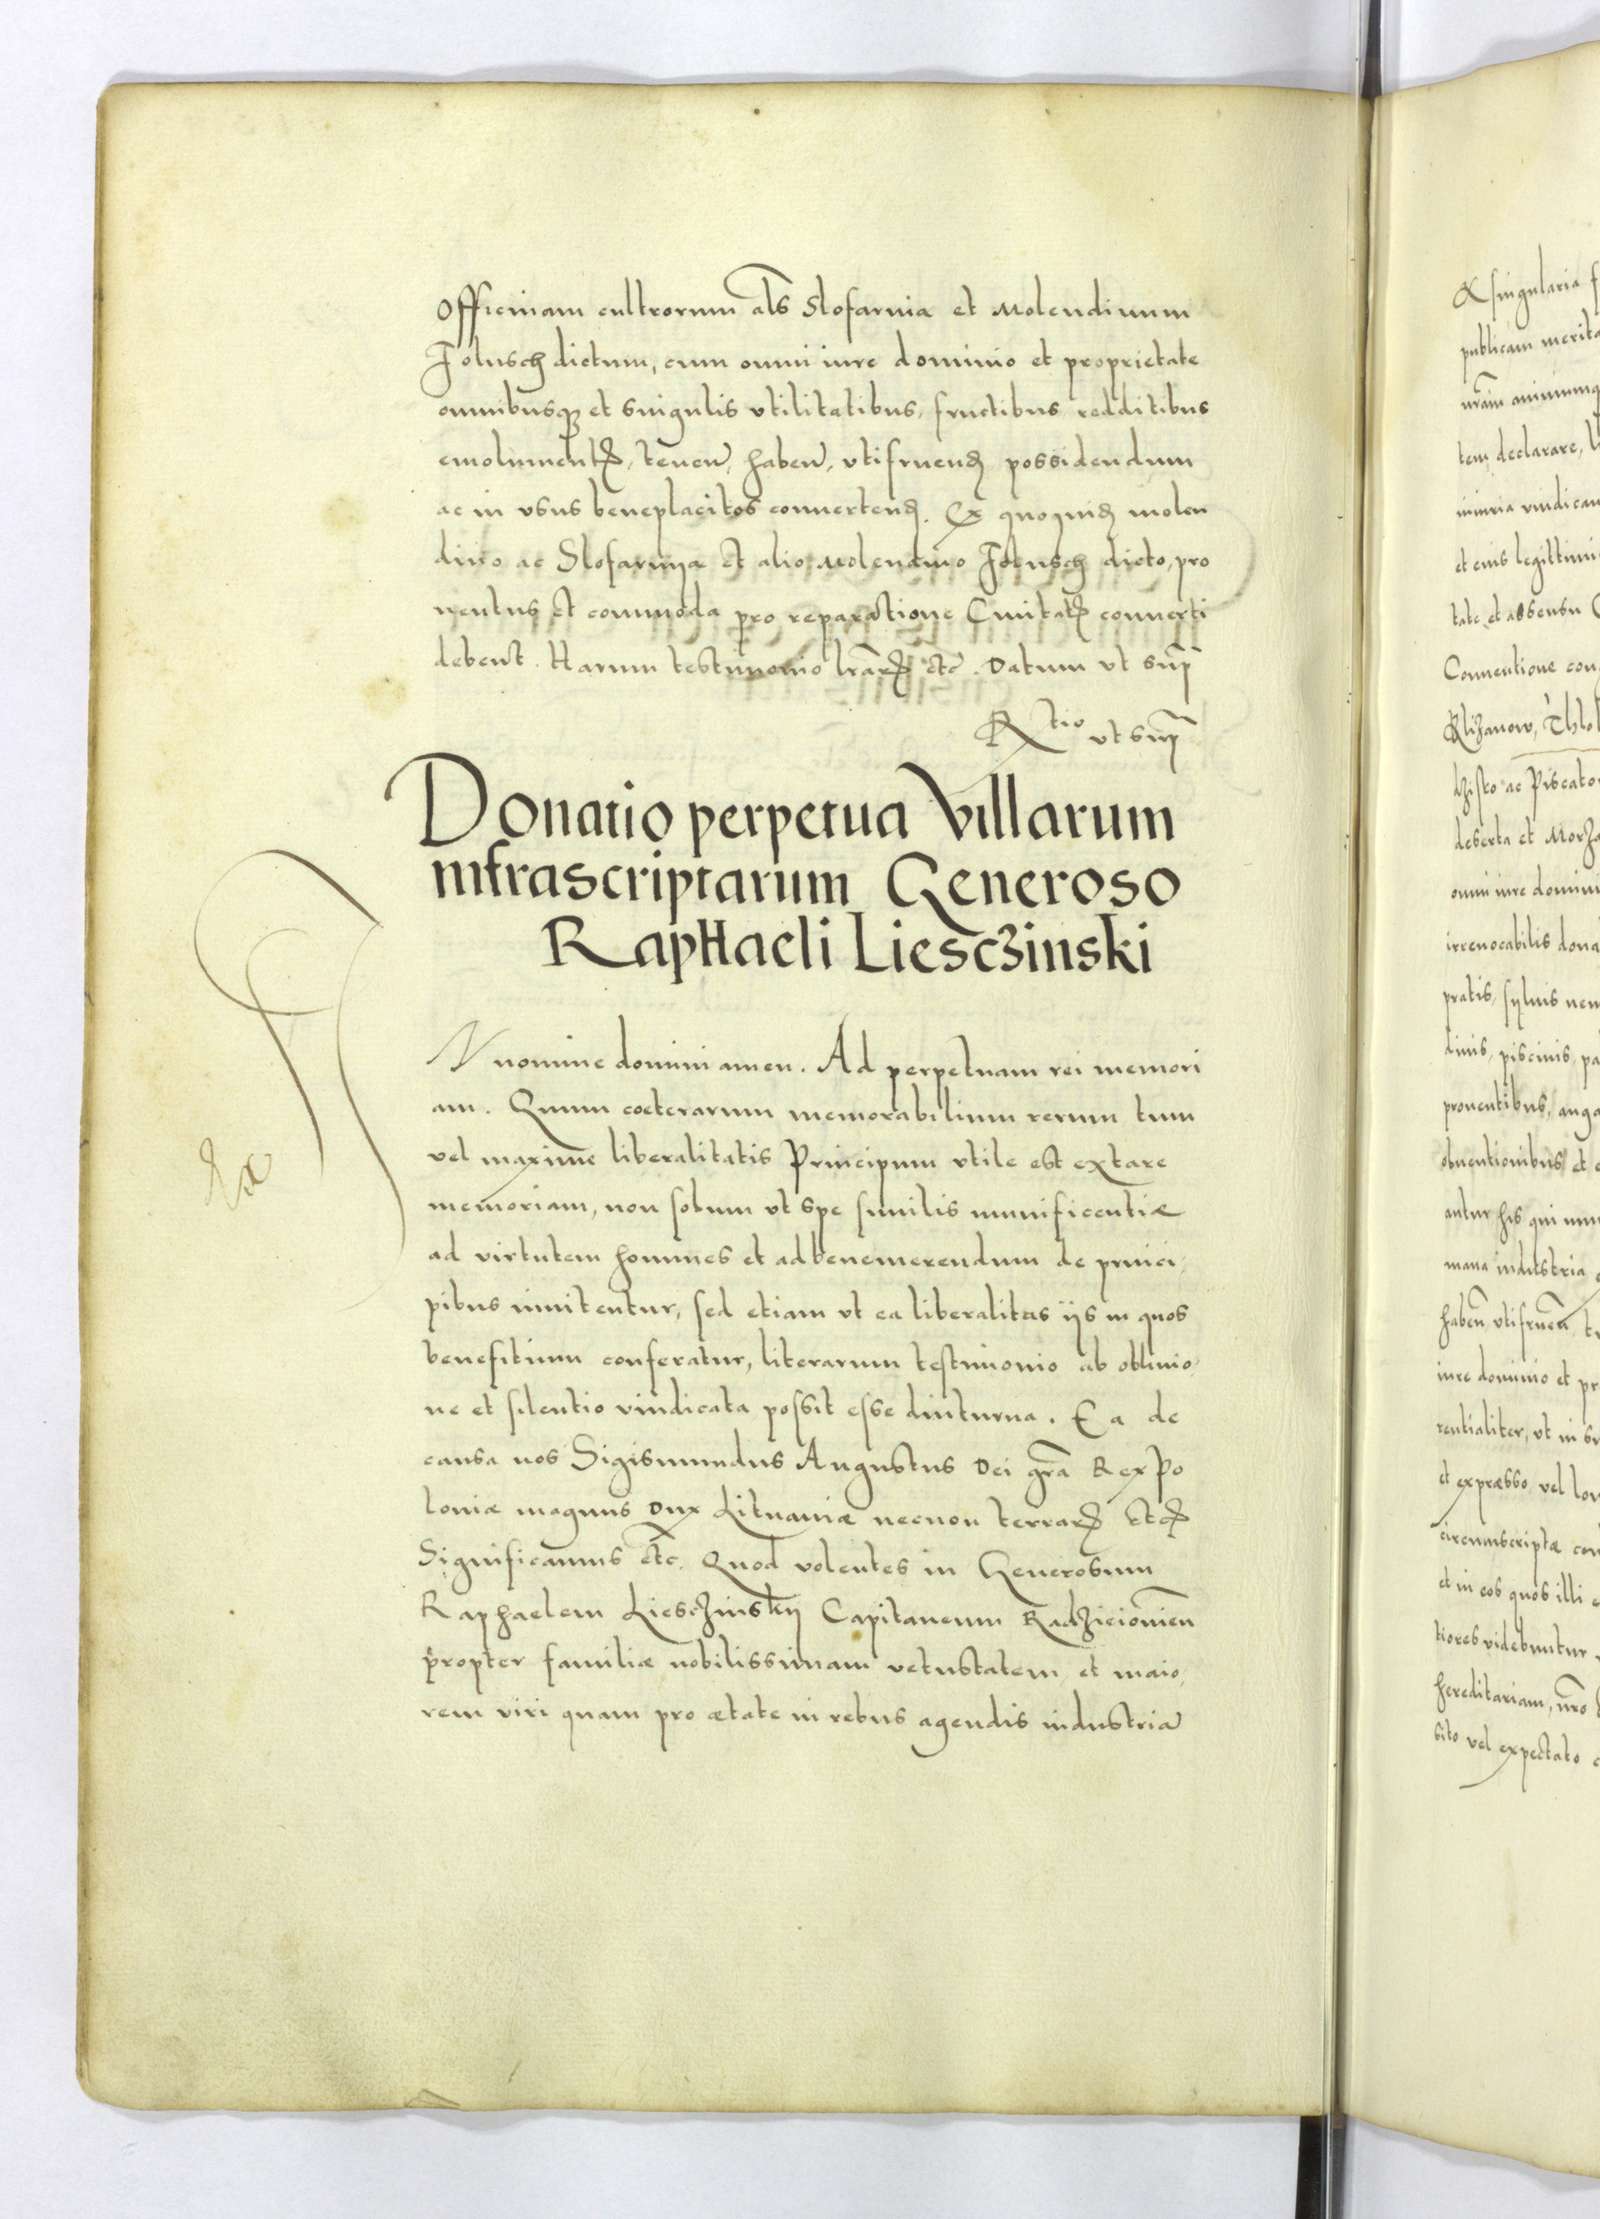 Officinam cultrorum al̃s Slofarnia et Molendinum
Jolusch dictum, cum omni iure dominio et proprietate
omnibusqꝫ et singulis vtilitatibus, fructibus redditibus
emolumentꝭ, tenen̄, haben̄, vtifruenꝭ possidendum
ac in vsus beneplacitos conuertenꝭ. Ex quoquiꝭ molen
dino ac Slofarnya et alio Molendino Jolusch dicto, pro
uentus et commoda pro reparatione Ciuitatꝭ conuerti
debent. Harum testimonio l̃rarꝭ etc̃. Datum vt sup̃
R̃tio vt sup̃
Donatio perpetua Villarum
infrascriptarum Generoso
Raphaeli Liesczinski
IN nomine domini amen. Ad perpetuam rei memori
am. Quum coeterarum memorabilium rerum tum
vel maxime liberalitatis Principum vtile est extare
memoriam, non solum vt spe similis munificentiæ
ad virtutem homines et ad benemerendum de princi,
pibus inuitentur, sed etiam vt ea liberalitas ijs in quos
benefitium conferatur, literarum testimonio ab obliuio,
ne et silentio vindicata possit esse diuturna. Ea de
causa nos Sigismundus Augustus Dei gr̃a Rex Po
loniæ magnus Dux Lituaniæ necnon terrarꝭ etcꝭ
Significamus etc̃. Quod volentes in Generosum
Raphaelem Liesczinskij Capitaneum Radzieiouien̄
propter familiæ nobilissimam vetustatem, et maio,
rem viri quam pro ætate in rebus agendis industria
Et singularia
publicam merita
nr̃am animumq
tem declarare,
iniuria vindicau
et eius legittimi
tate et assensu
Conuentione con
Klizanow,
ac Piscato
deserta et
omni iure domini
irreuocabilis dona
pratis, syluis nem
piscinis, pa
prouentibus, anga
obuentionibus et
antur his qui nun
mana industria
haben̄ vtifruen̄
iure dominio et pr
rentialiter, vt in
et expræsso vel lon
circumscriptæ con
et in eos quos illi
tiores videbuntur
hereditariam, nr̃o
sito vel expectato